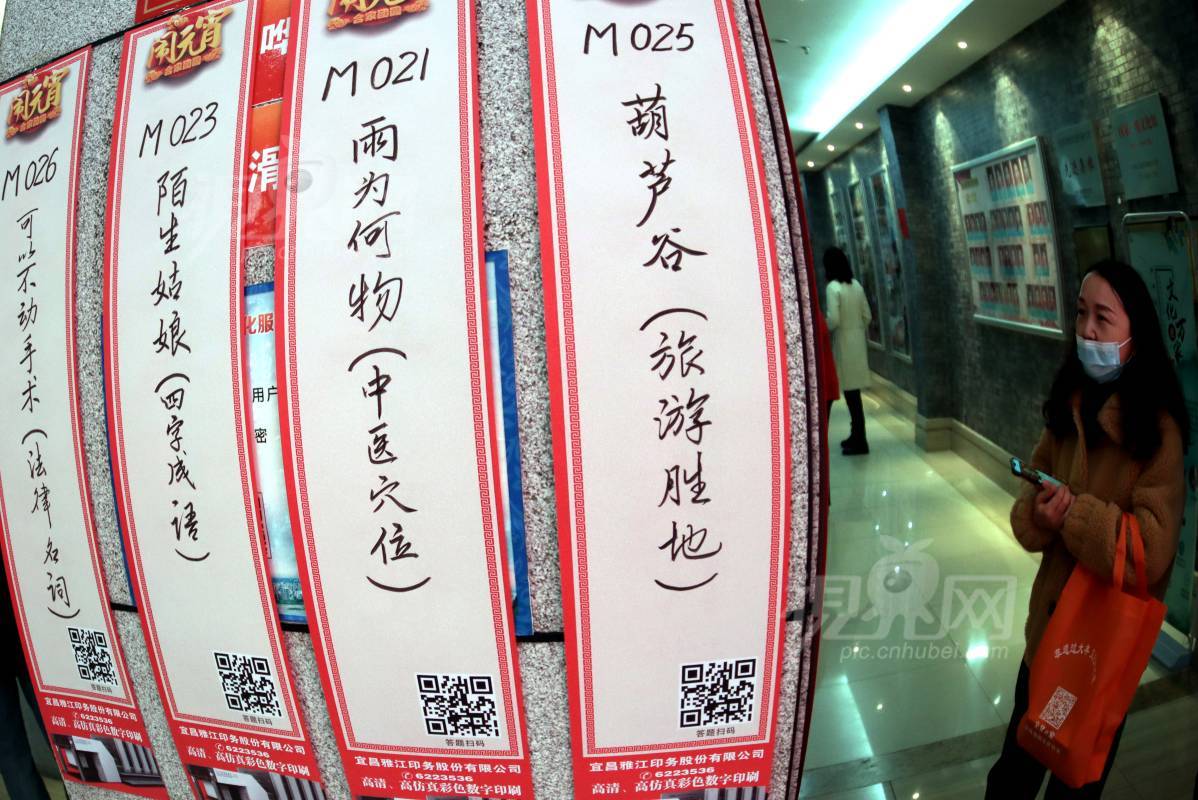 闹元宵
M026
可以不动手术(法律名词)
答题扫码
宜昌雅江印务股份有限公司
6223536
高清、高仿真彩色数字印刷
闹元宵
M023
陌生姑娘(四字成语)
答题扫码
宜昌雅江印务股份有限公司
6223536
高清、高仿真彩色数字印刷
滑
化服
用户
密
M021
雨为何物(中医穴位)
答题扫码
宜昌雅江印务股份有限公司
6223536
高清、高仿真彩色数字印刷
M025
葫芦谷(旅游胜地)
答题扫码
宜昌雅江印务股份有限公司
6223536
高清、高仿真彩色数字印刷
文化
pic.cnhubei.com